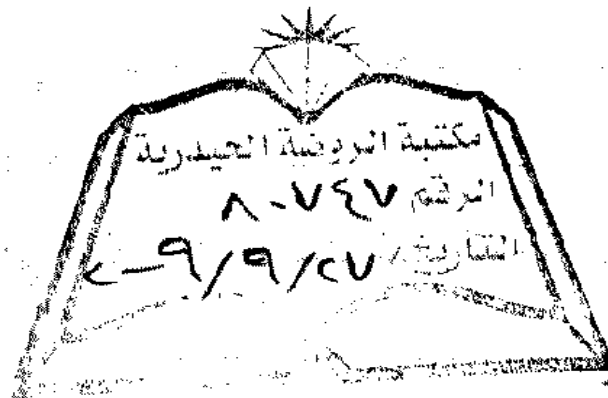 مكتبة الروضة الحيدرية
الرقم ٨٠٧٤٧
التاريخ / ٢٠٠٩/٩/٢٧